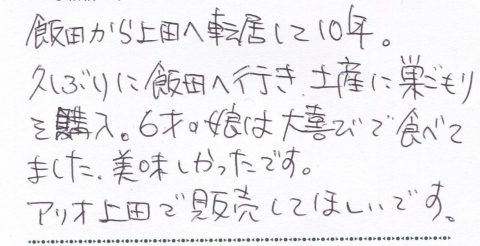 飯田から上田へ転居して10年。
久しぶりに飯田へ行き、土産に巣ごもり
を購入。6才の娘は大喜びで食べて
ました。美味しかったです。
アリオ上田で販売してほしいです。